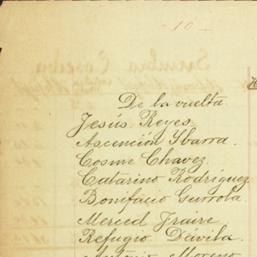 - 10 -
De la vuelta
Jesús Reyes
Ascención Ybarra
Cosme Chavez
Catarino Rodríguez
Bonifacio Gurrola
Merced Fraire
Refugio Dávila
Antonio Moreno